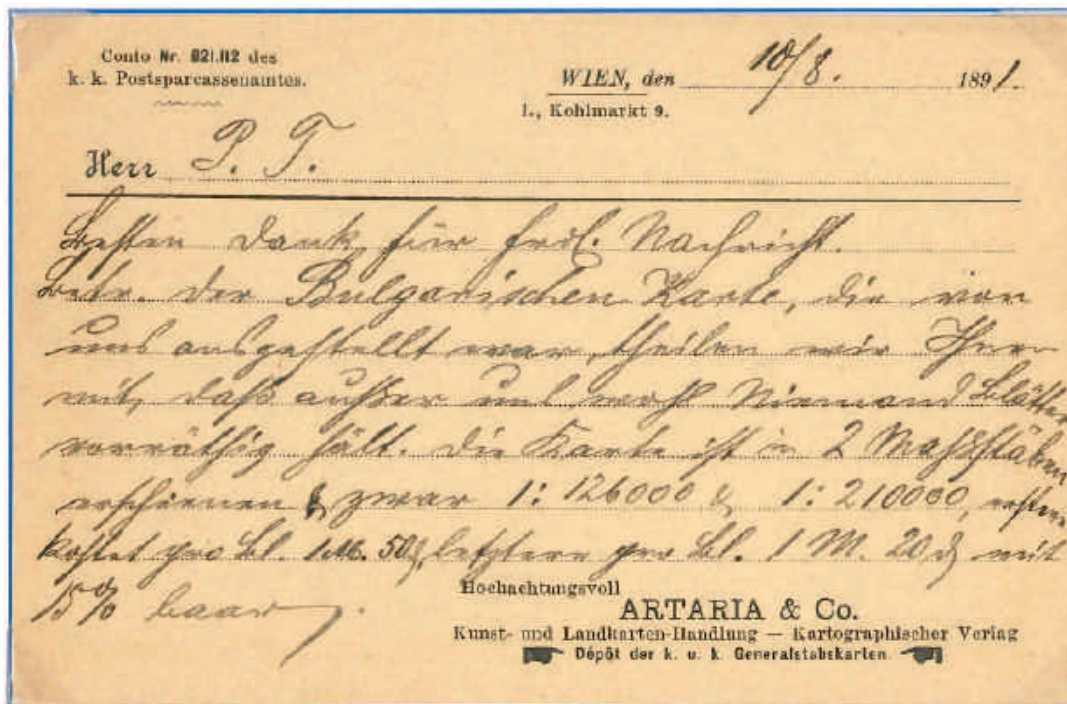 Conto Nr. 821.112 des
k. k. Postsparcassenamtes.
WIEN, den 10/8. 1891.
I., Kohlmarkt 9.
Herr P. T.
Besten Dank für frdl. Nachricht.
Betr. der Bulgarischen Karte, die von
uns ausgestellt war, theilen wir Ihnen
mit, daß außer uns wohl Niemand Blätter
vorräthig hält. Die Karte ist in 2 Maßstäben
erschienen & zwar 1:126000 & 1:210000, erstere
kostet pro Bl. 1 M. 50 ₰, letztere pro Bl. 1 M. 20 ₰ mit
15% baar.
Hochachtungsvoll
ARTARIA & Co.
Kunst- und Landkarten-Handlung — Kartographischer Verlag
Dépôt der k. u. k. Generalstabskarten.